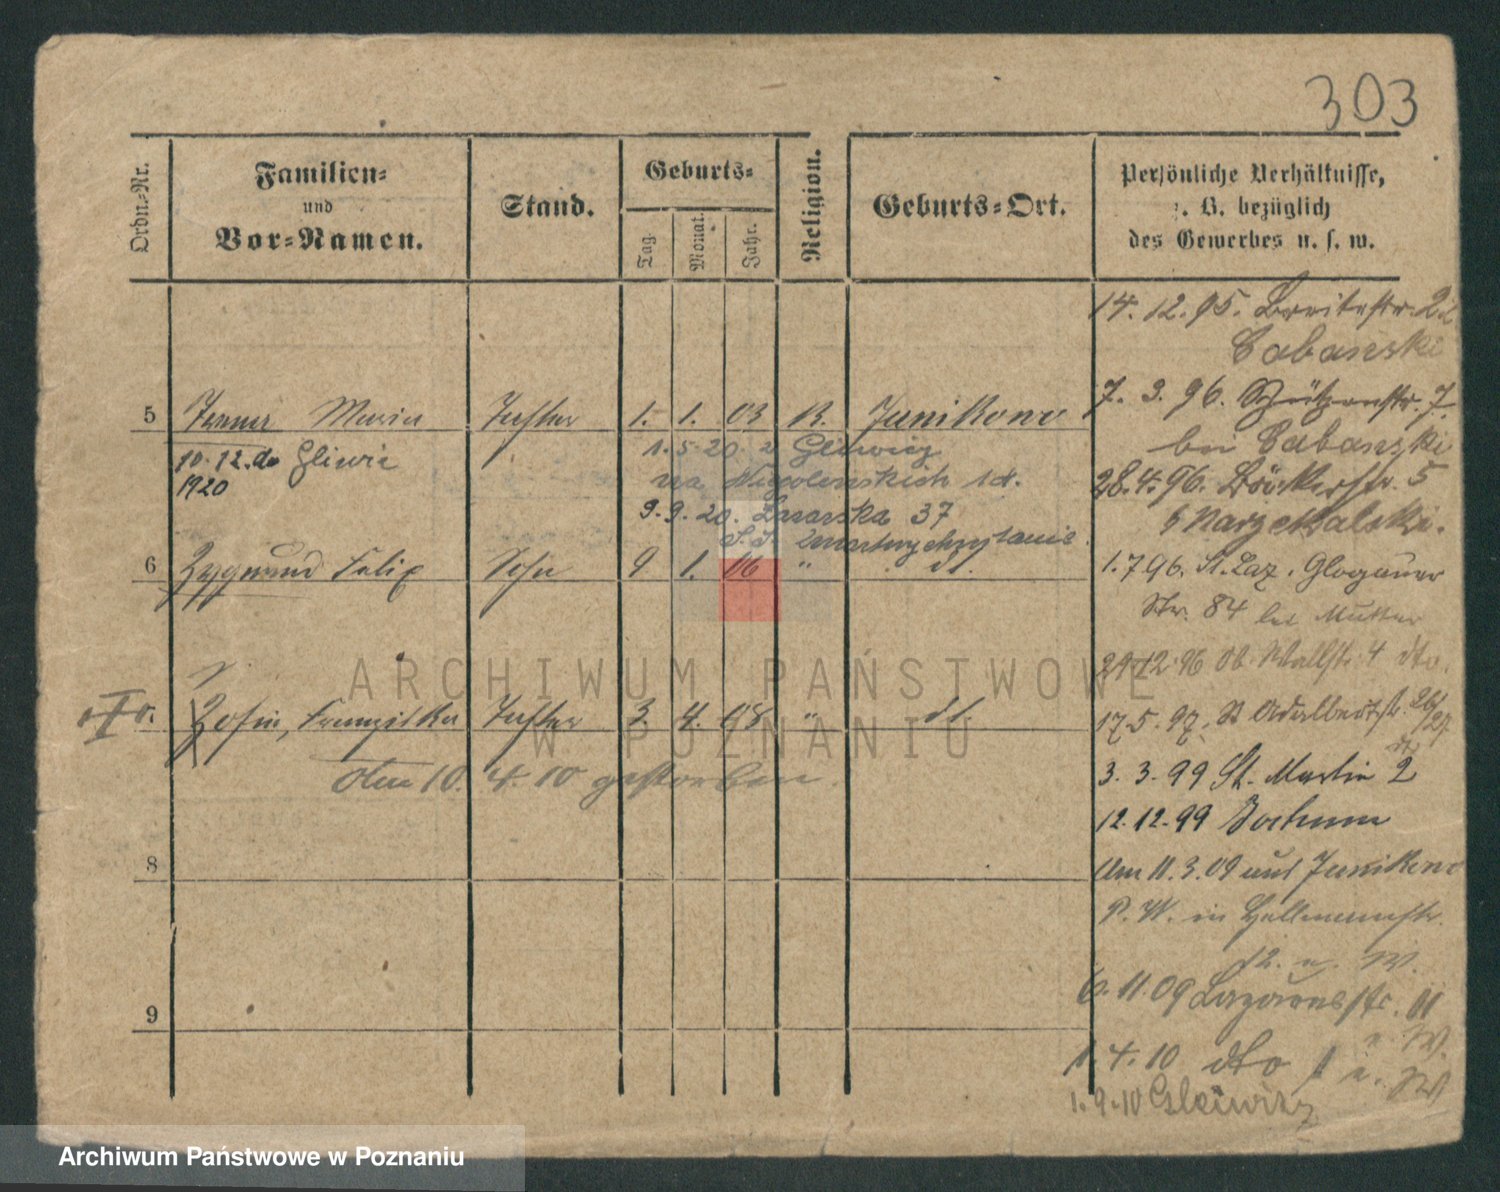 303
Ordn.-Nr.
Familien-
und
Vor-Namen.
Stand.
Geburts-
Tag.
Monat.
Jahr.
Religion.
Geburts-Ort.
Persönliche Verhältnisse,
z. B. bezüglich
des Gewerbes u. s. w.
14. 12. 95. Breitestr. 22
Cabanski
7. 3. 96. Schützenstr. 7.
bei Cabanski
28. 4. 96. Bäckerstr. 5
b
1. 7 96. St. Laz. Glogauer
Str. 84 bei Mutter
29 12 96 Ob. Wallstr. 4 dto.
17. 5. 97. St Adalbertstr. 26/27.
3. 3. 99 St. Martin 2
12. 12. 99 Bochum
Am 11. 3. 09 aus Junikowo
P. W. in
12. u. W.
6. 11. 09 Lazarusstr. 11
u W.
1. 4. 10 dto
i. W
1. 9. 10 Gleiwitz
5 Irena Maria Tochter 1. 1. 03 K. Junikowo
10. 12. do Gliwic
1920
1. 5. 20. z Gliwicz
na 1d.
9. 9. 20. Lazarska 37
6 Zygmund Felix Sohn 9 1. 06 " dt.
Zofia, Franziska Tochter 3. 4. 08 " dt
Am 10. 4. 10 gestorben.
8
9
ARCHIWUM PAŃSTWOWE
W POZNANIU
Archiwum Państwowe w Poznaniu